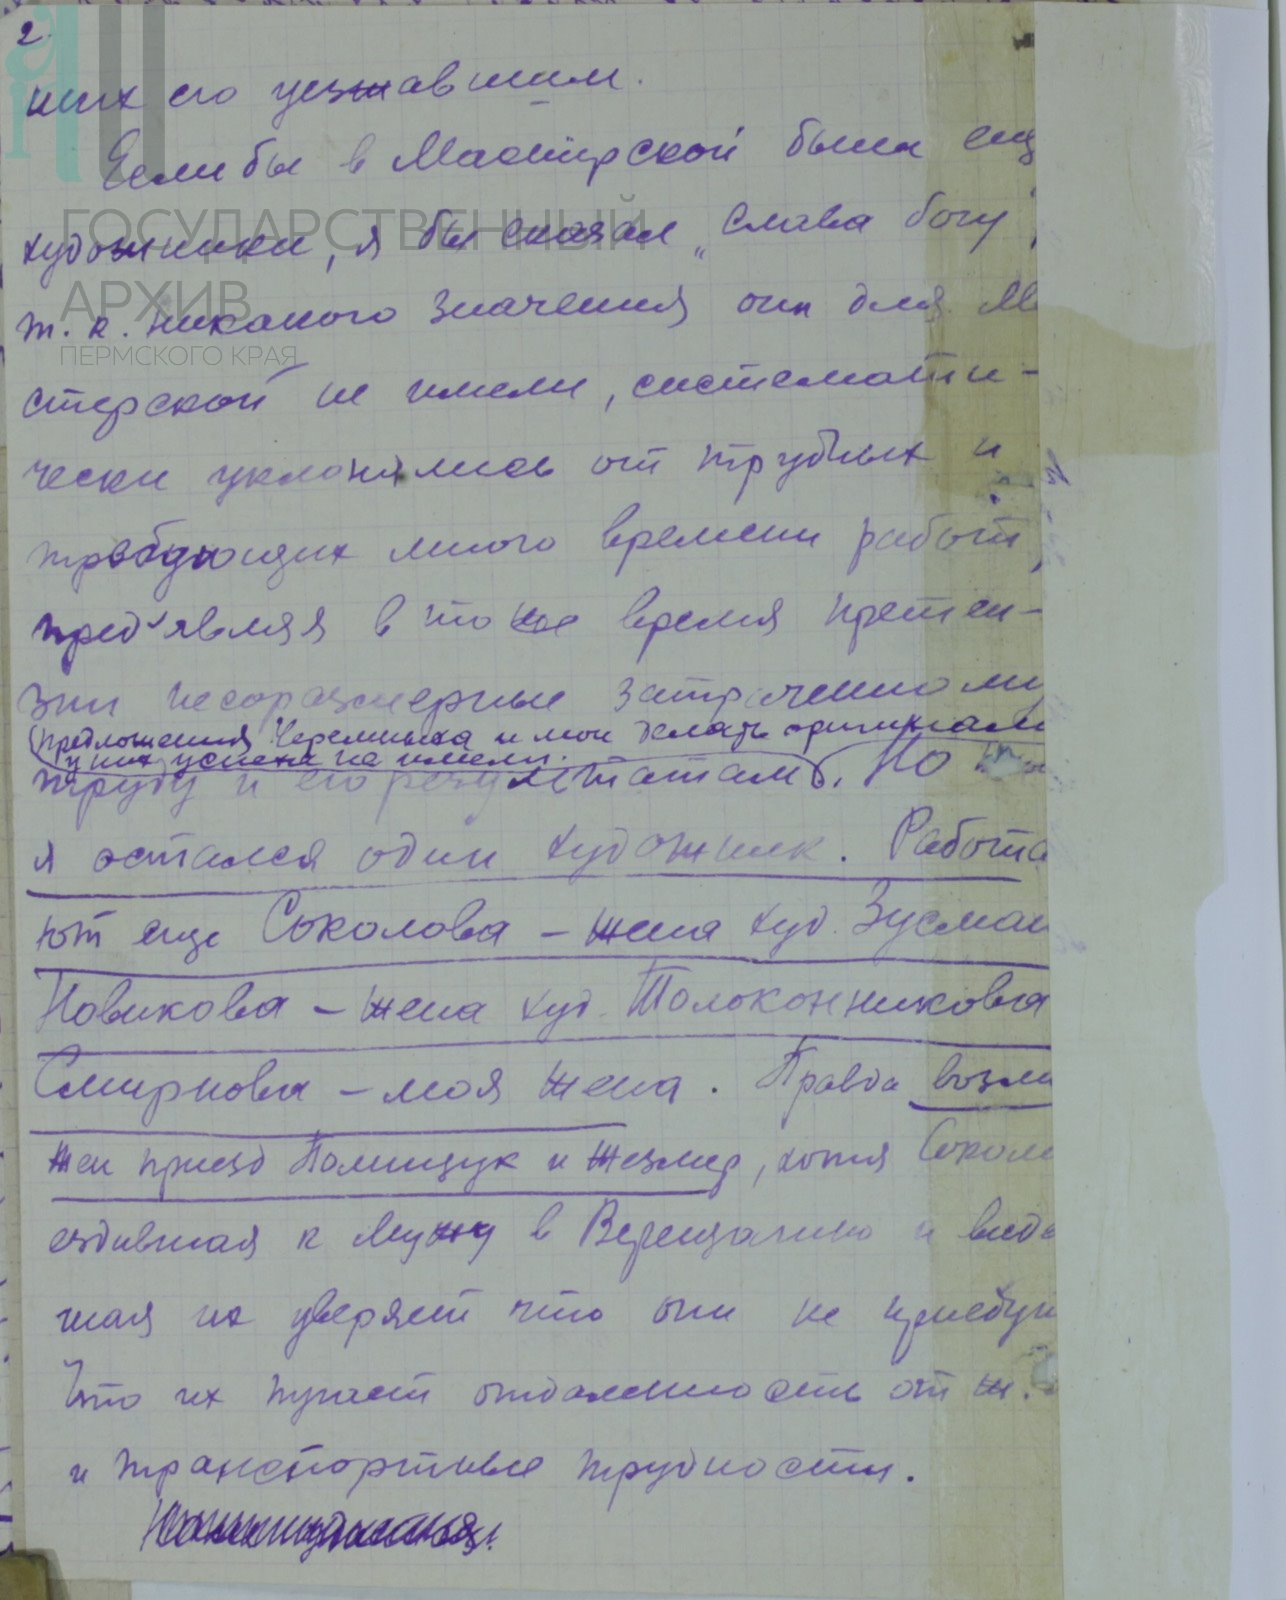 2
них его уезжавшим.
Если бы в Мастерской были ещ
художники, я бы сказал „Слава богу",
т. к. никакого значения они для Ма
стерской не имели, системати-
чески уклонялись от трудных и
требующих много времени работ,
пред'являя в то же время претен-
зии несоразмерные затраченному
(Предложения Черемныха и мои делать оригиналы
у них успеха не имели.
труду и его результатам). Но
я остался один художник. Работа
ют еще Соколова – жена худ. Зусман
Новикова – жена худ. Толоконникова
Смирнова – моя жена. Правда возмо
жен приезд Полищук и Жезмер, хотя Соколо
ездившая к мужу в Верещагино и виде
шая их уверяет что они не приедут
Что их пугает отдаленность от ж.
и транспортные трудности.
ГОСУДАРСТВЕННЫЙ
АРХИВ
ПЕРМСКОГО КРАЯ